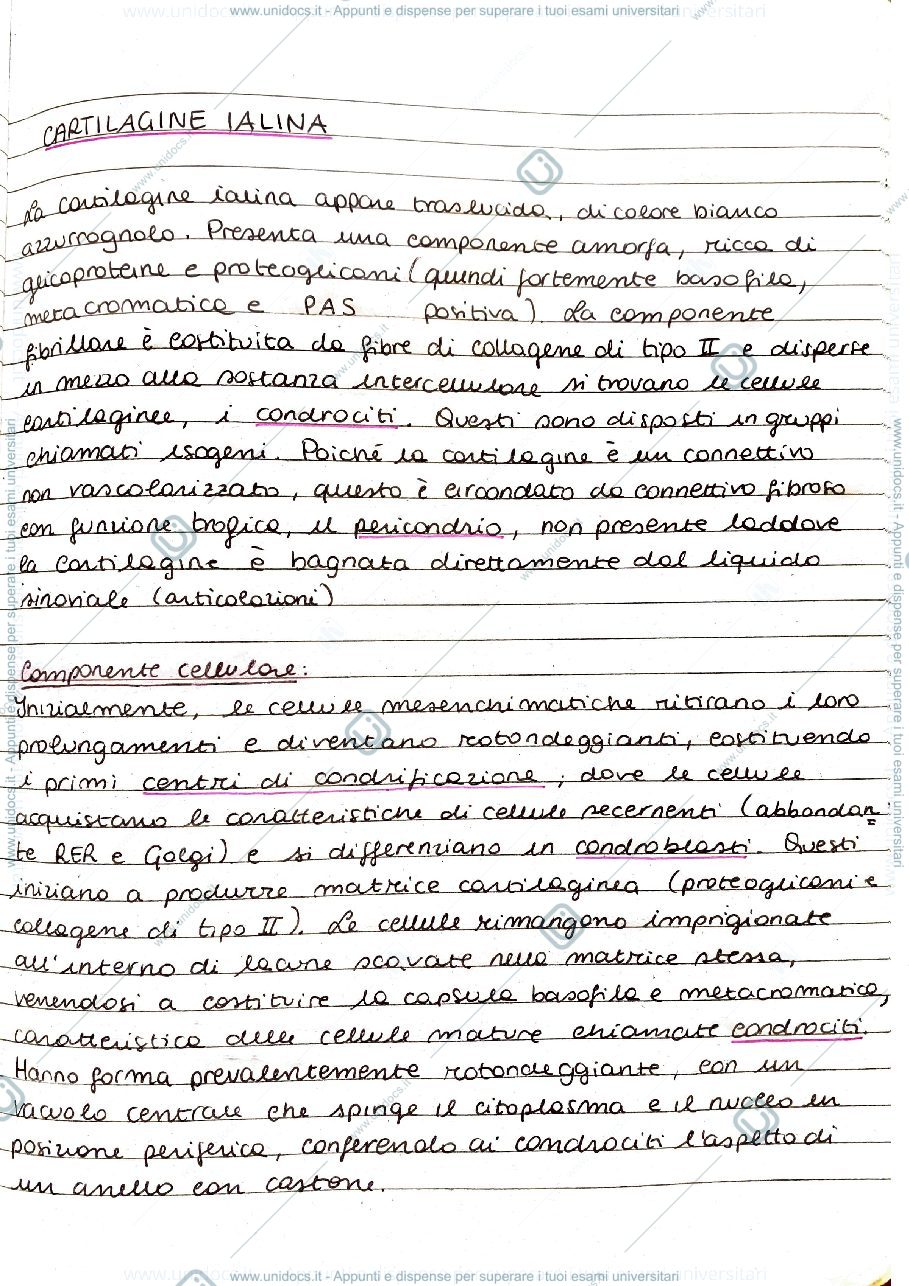 www.unidocs.it - Appunti e dispense per superare i tuoi esami universitari
CARTILAGINE IALINA
La cartilagine ialina appare traslucida, di colore bianco
azzurrognolo. Presenta una componente amorfa, ricca di
glicoproteine e proteoglicani (quindi fortemente basofila,
metacromatica e PAS positiva) La componente
fibrillare è costituita da fibre di collagene di tipo II e disperse
in mezzo alla sostanza intercellulare si trovano le cellule
cartilaginee, i condrociti. Questi sono disposti in gruppi
chiamati isogeni. Poiché la cartilagine è un connettivo
non vascolarizzato, questo è circondato da connettivo fibroso
con funzione trofica, il pericondrio, non presente laddove
la cartilagine è bagnata direttamente dal liquido
sinoviale (articolazioni)
Componente cellulare:
Inizialmente, le cellule mesenchimatiche ritirano i loro
prolungamenti e diventano rotondeggianti, costituendo
i primi centri di condrificazione, dove le cellule
acquistano le caratteristiche di cellule secernenti (abbondan
te RER e Golgi) e si differenziano in condroblasti. Questi
iniziano a produrre matrice cartilaginea (proteoglicani e
collagene di tipo II). Le cellule rimangono imprigionate
all'interno di lacune scavate nella matrice stessa,
venendosi a costituire la capsula basofila e metacromatica,
caratteristica delle cellule mature chiamate condrociti.
Hanno forma prevalentemente rotondeggiante, con un
vacuolo centrale che spinge il citoplasma e il nucleo in
posizione periferica, conferendo ai condrociti l'aspetto di
un anello con castone.
www.unidocs.it - Appunti e dispense per superare i tuoi esami universitari